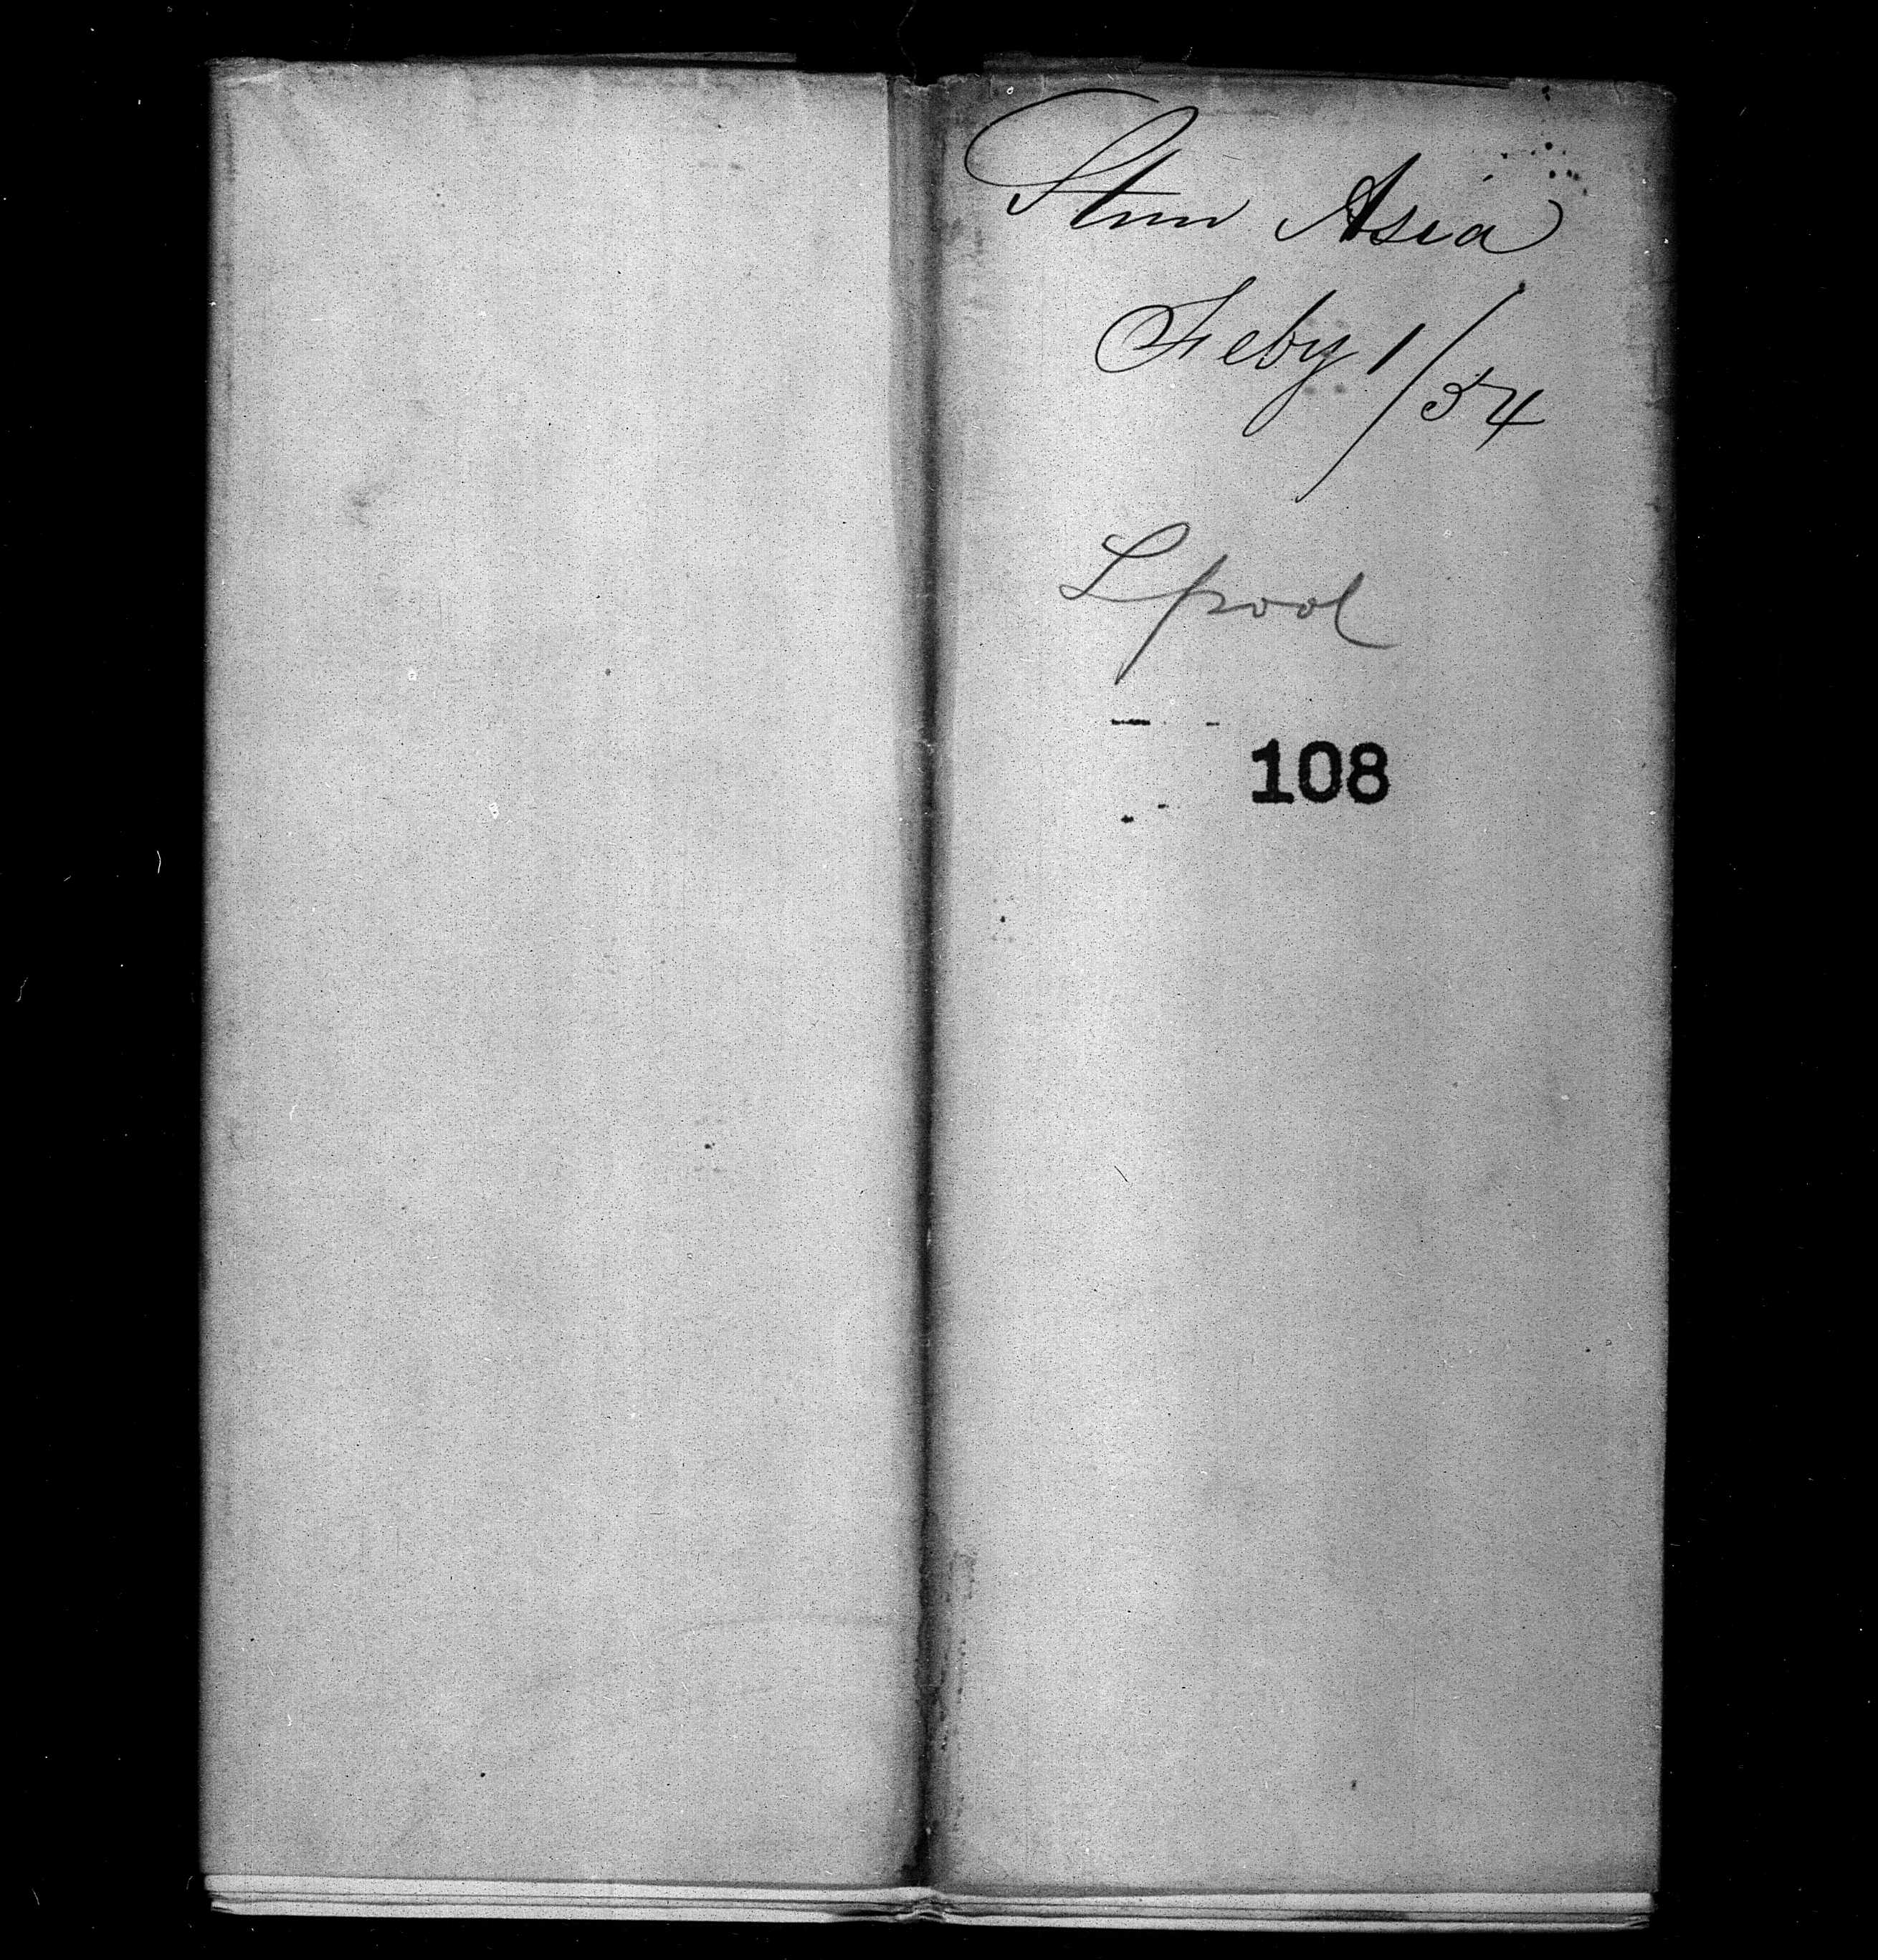 Stmr Asia
Feby 1/54
Lpool
108